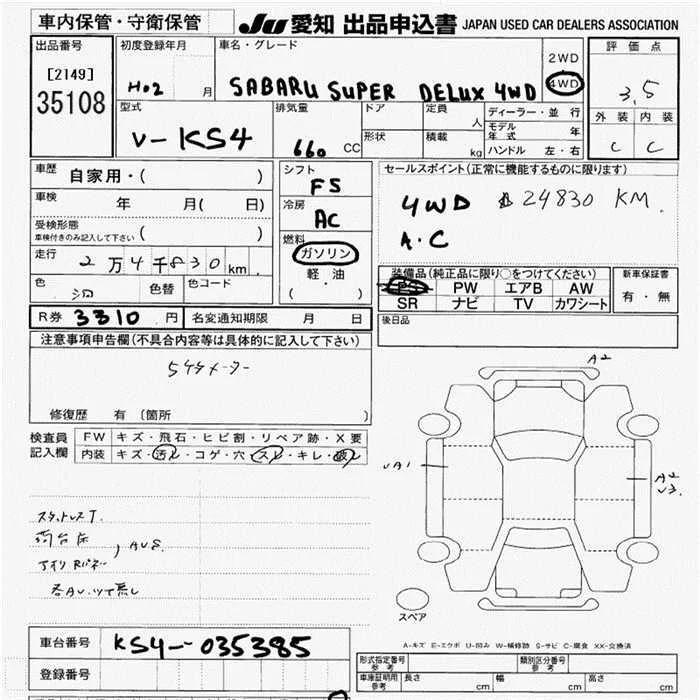 車内保管・守衛保管 JU 愛知 出品申込書 JAPAN USED CAR DEALERS ASSOCIATION
出品番号 初度登録年月 車名・グレード 2WD 評価点
[2149] H02 月 SABARU SUPER DELUX 4WD 4WD 3.5
35108 型式 排気量 ドア 定員 ディーラー・並行 外装 内装
V-KS4 660 CC 形状 人 積載 kg モデル年式 年 C C
ハンドル 左・右
車歴 自家用・( ) シフト セールスポイント(正常に機能するものに限ります)
F5
車検 年 月( 日) 冷房 4WD 24830 KM.
AC A.C
受検形態 車検付きのみ記入して下さい ( ) 燃料
走行 2万4千830km ガソリン 装備品(純正品に限り○をつけてください) 新車保証書
軽・油 PS PW エアB AW 有・無
色 色替 色コード ( ・ ) SR ナビ TV カワシート
R券 3310円 名変通知期限 月 日 後日品
注意事項申告欄(不具合内容等は具体的に記入して下さい)
5ケタメーター
修復歴 有 〔箇所 〕
検査員 FW キズ・飛石・ヒビ割・リペア跡・X要
記入欄 内装 キズ・汚れ・コゲ・穴・スレ・キレ・破れ
A2
A1
A2
スタットレスT.
荷台
スペア
A-キズ E-エクボ U-凹み W-補修跡 S-サビ C-腐食 XX-交換済
車台番号 KS4-035385
形式指定番号 参考 類別区分番号 参考
登録番号 車庫証明用 参考 長さ cm 幅 cm 高さ cm